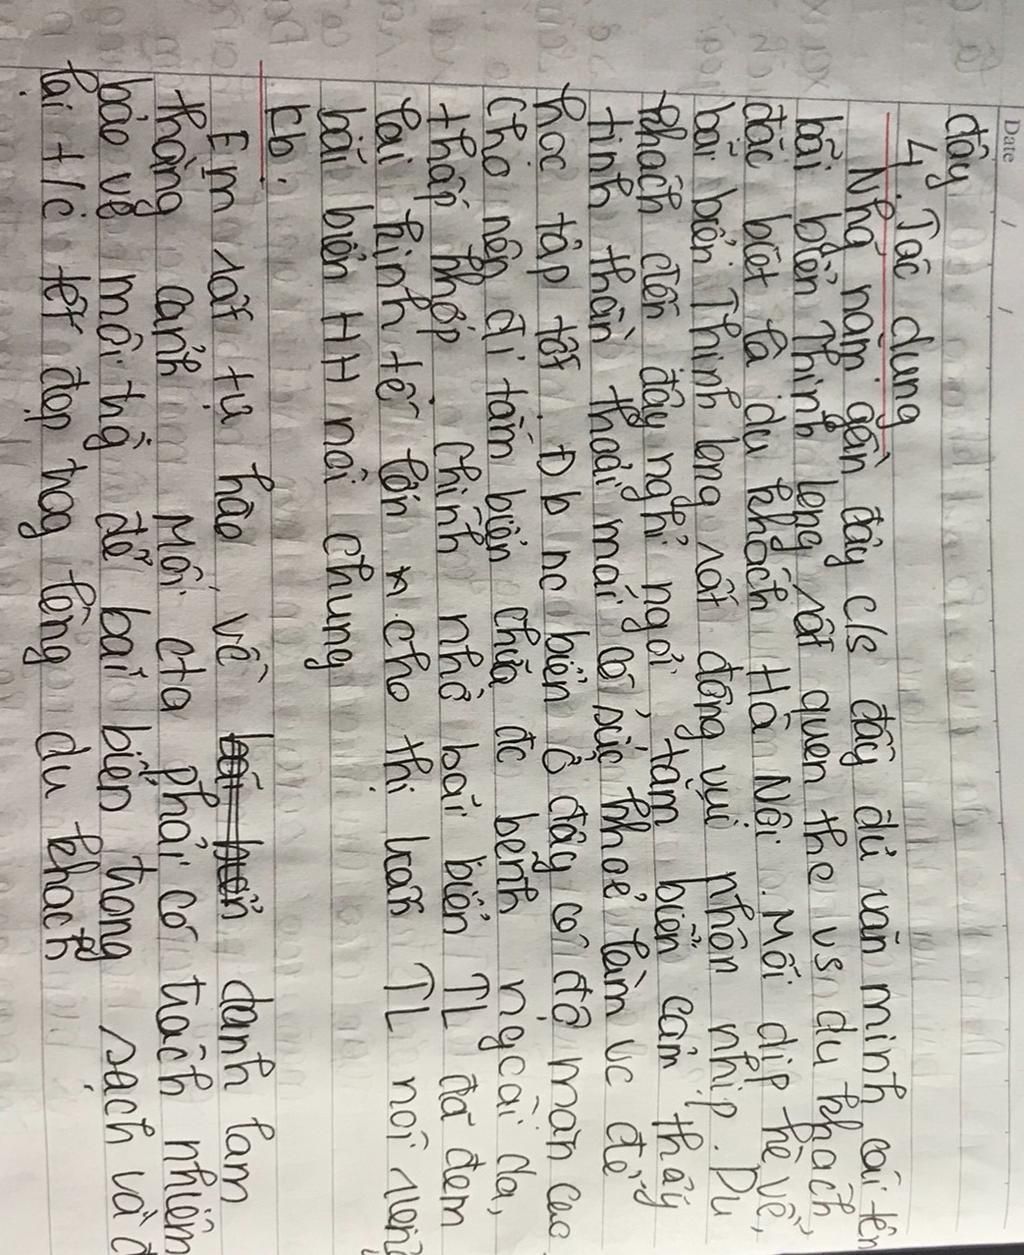 Date / /
đây
4. Tác dụng
Nhg năm gần đây c/s đầy đủ văn minh cái tên
bãi biển Thịnh Long rất quen thc vs du khách,
đặc biệt là du khách Hà Nội. Mỗi dịp hè về,
bãi biển Thịnh Long rất đông vui nhộn nhịp. Du
khách đến đây nghỉ ngơi, tắm biển cảm thấy
tinh thần thoải mái có sức khoẻ làm vc để
học tập tốt. Đb nc biển ở đây có độ mặn cao
cho nên đi tắm biển chữa đc bệnh ngoài da,
thấp khớp. Chính nhờ bãi biển TL đã đem
lại kinh tế lớn cho thị trấn TL nói riêng
bãi biển HH nói chung
Cb.
Em rất tự hào về bãi biển danh lam
thắng cảnh. Mỗi cta phải có trách nhiệm
bảo vệ môi trg để bãi biển trong sạch và
lại t/c tốt đẹp trog lòng du khách